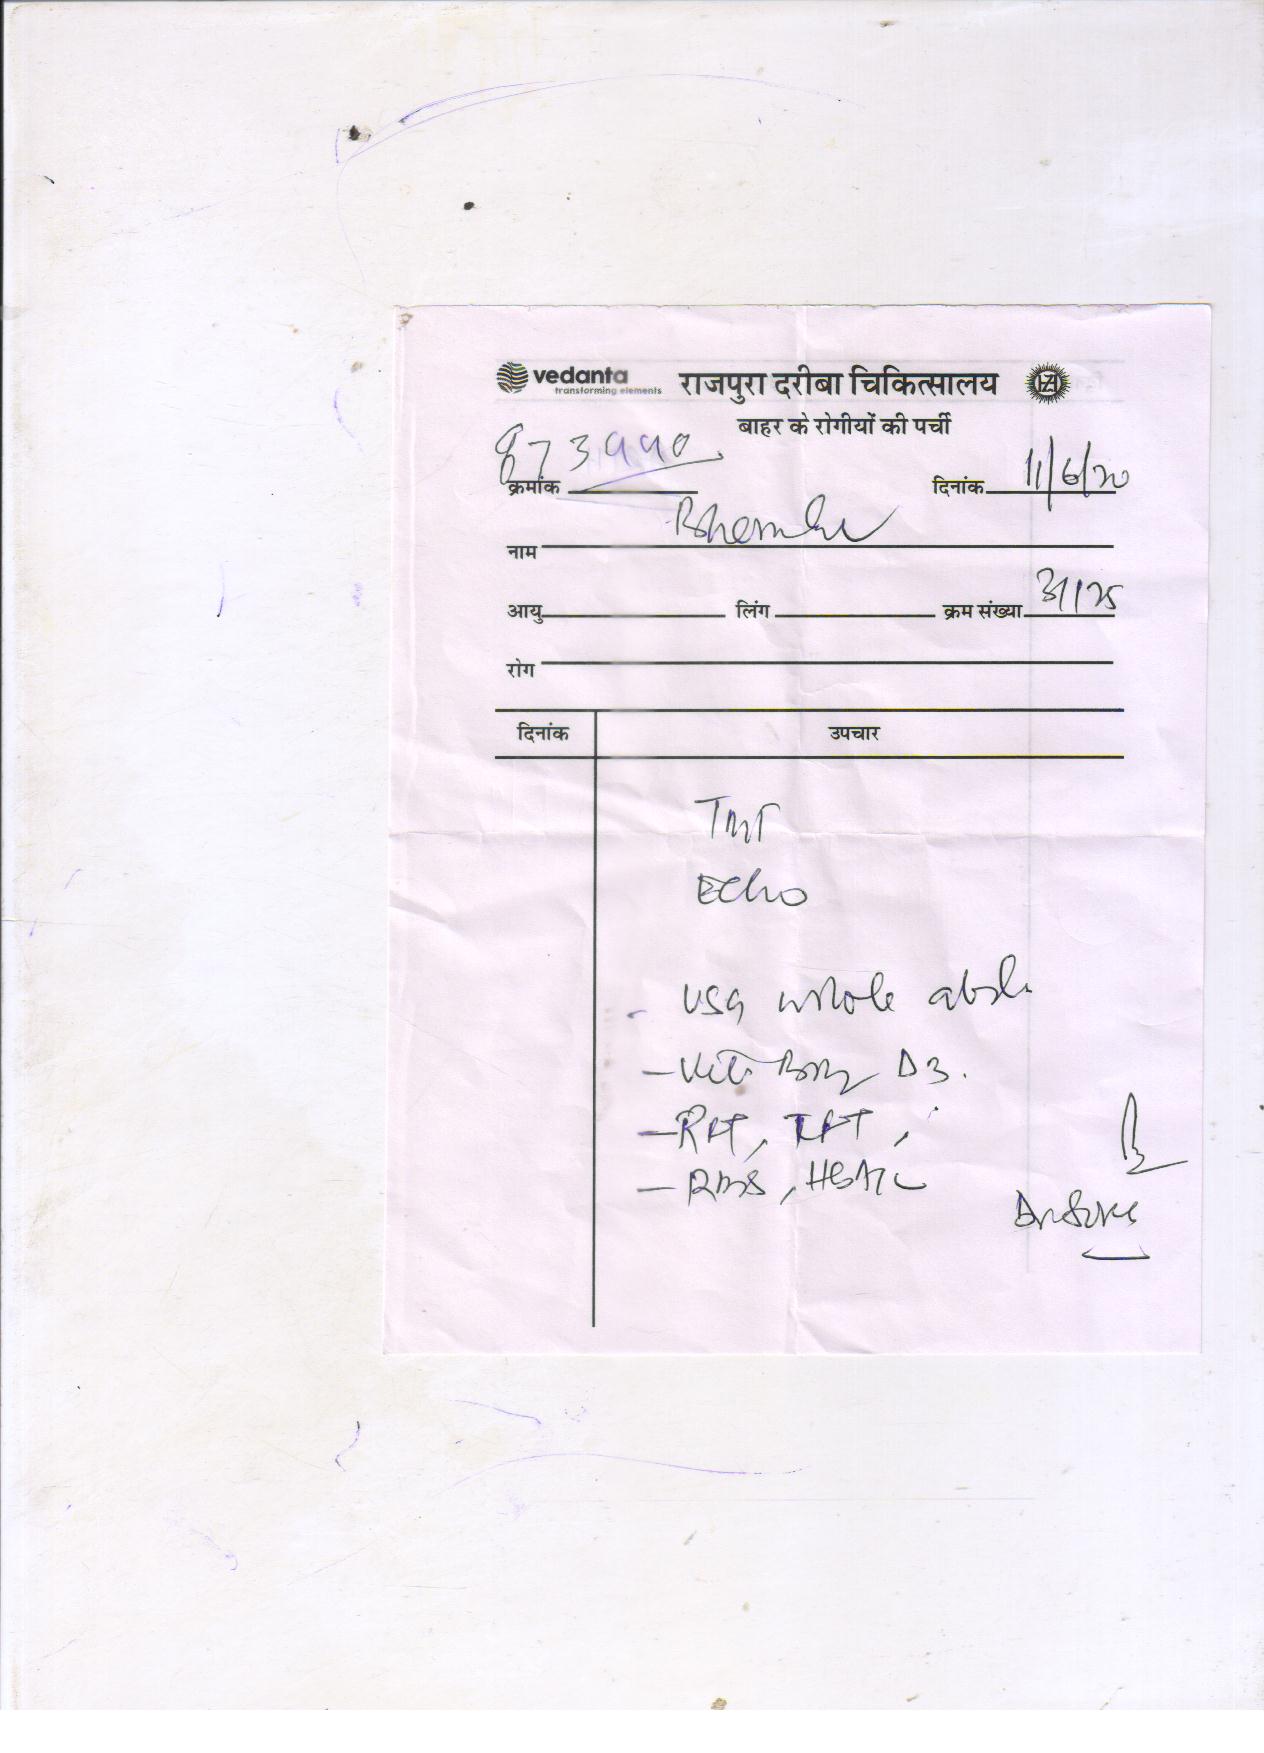 vedanta
transforming elements
राजपुरा दरीबा चिकित्सालय
बाहर के रोगीयों की पर्ची
क्रमांक 873990
दिनांक 11/6/20
नाम
आयु लिंग क्रम संख्या
रोग
दिनांक उपचार
TMT
Echo
- USG whole
- Vit B12 D3.
- RFT, LFT,
- RBS, HbA1C